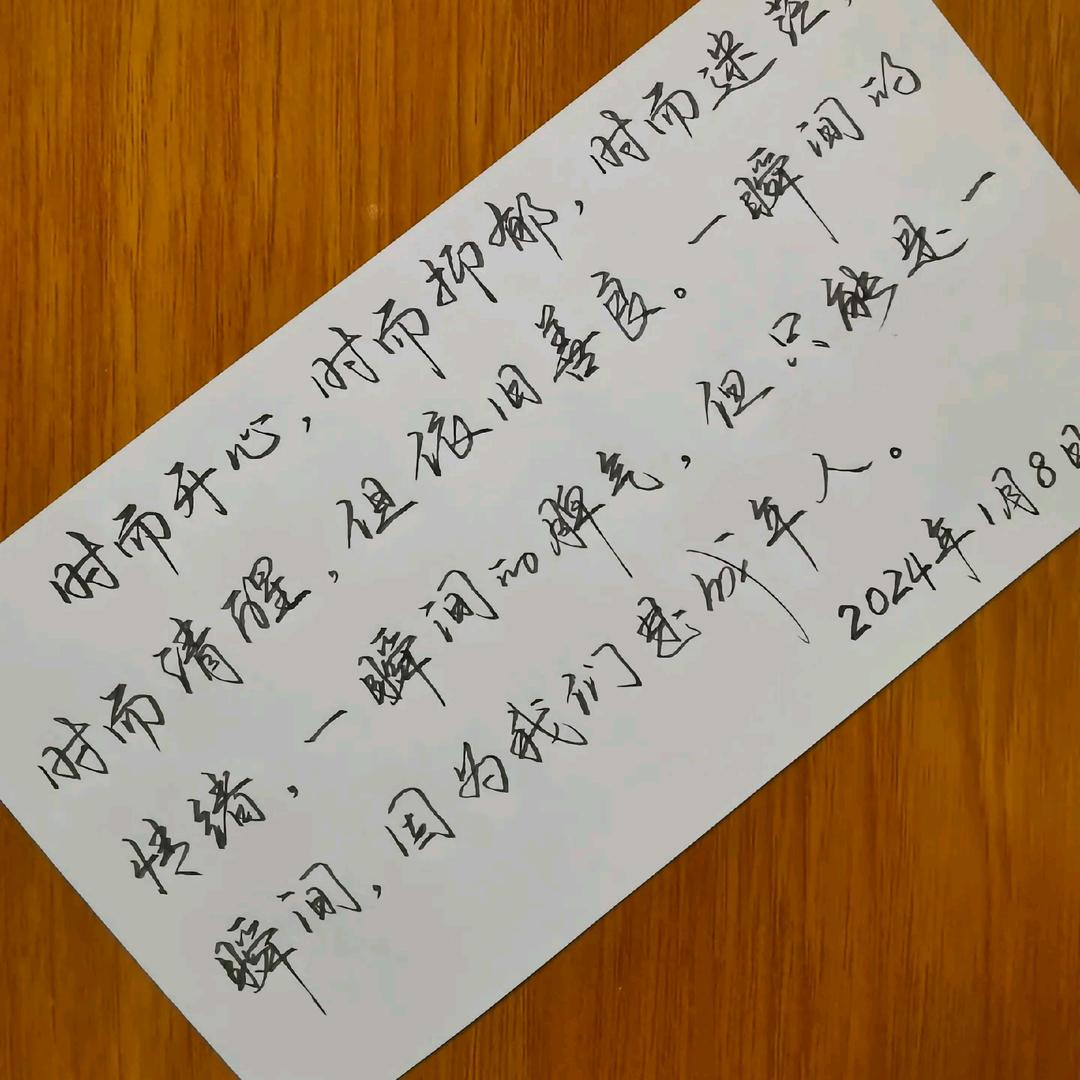 时而开心，时而抑郁，时而迷茫，
时而清醒，但依旧善良。一瞬间的
情绪，一瞬间的脾气，但只能是一
瞬间，因为我们是成年人。
2024年1月8日